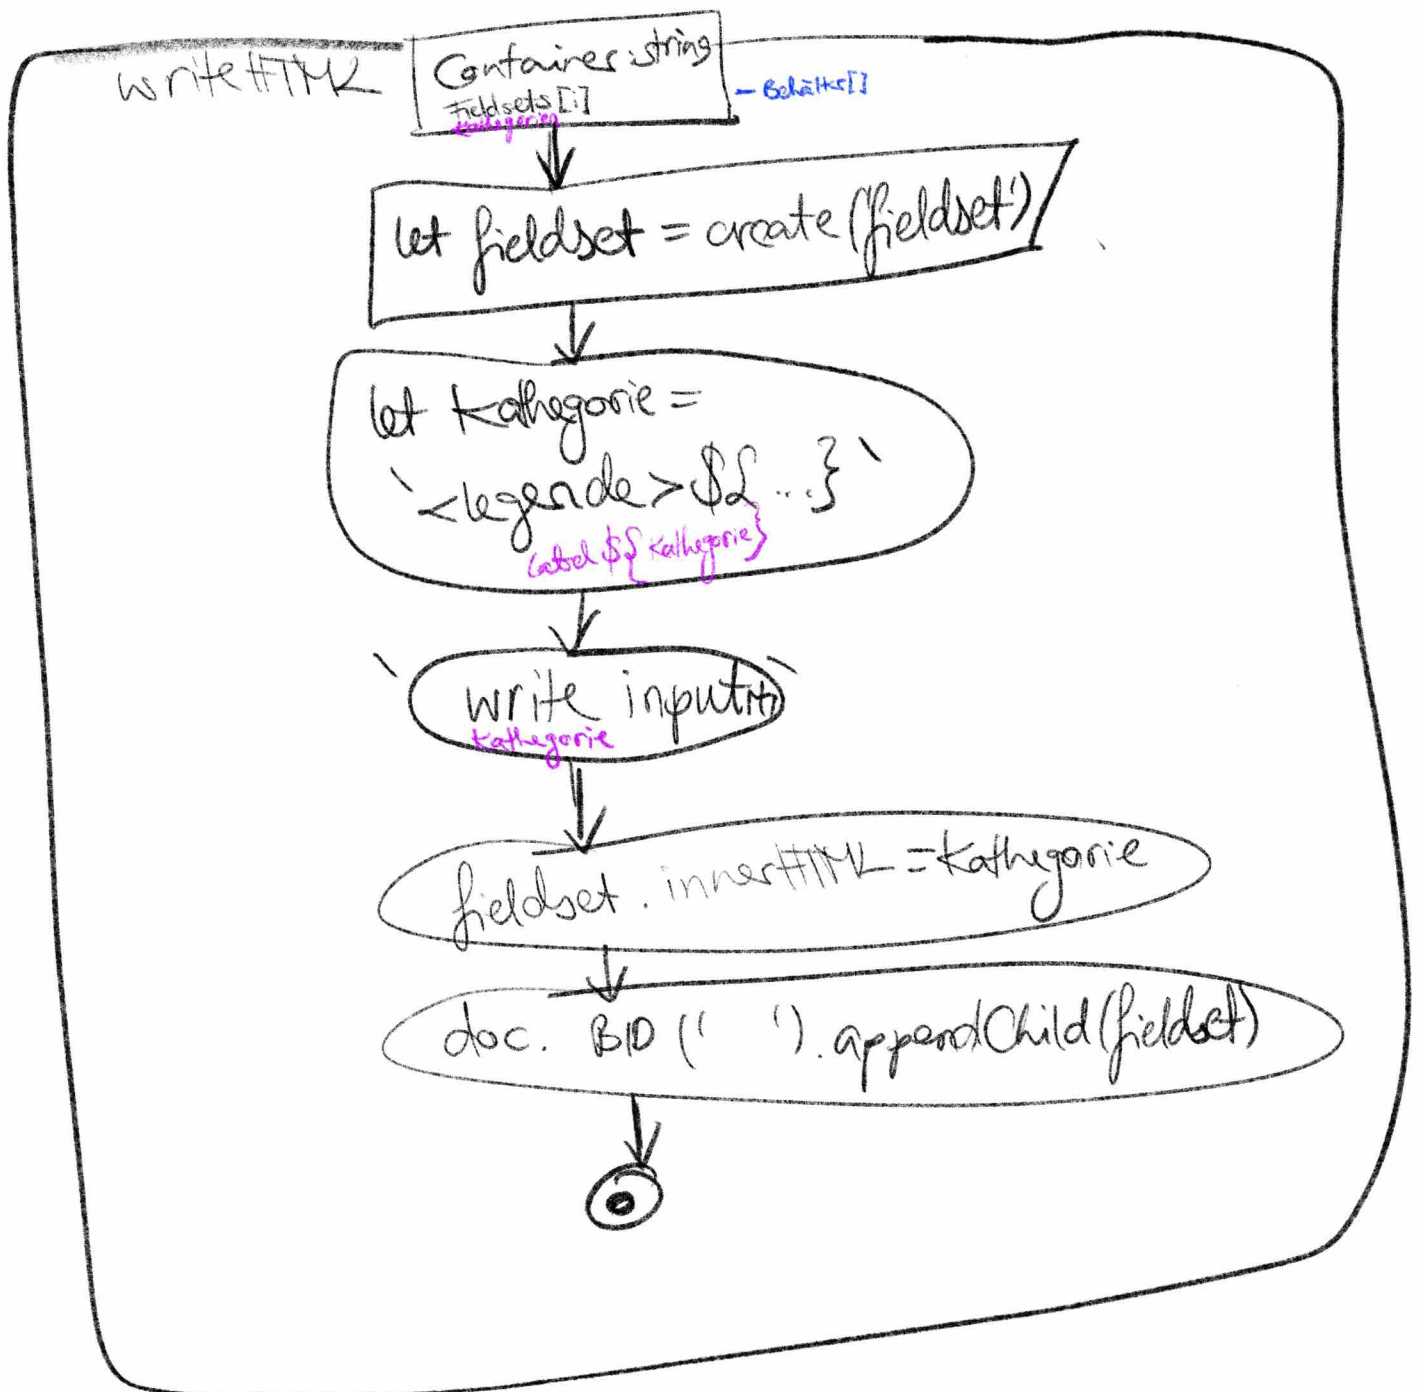 writeHTML
Container: string
Fieldsets[i]
Kathegorien
– Behälter[]
let fieldset = create('fieldset')
let Kathegorie =
`<legende>${...}`
Label ${Kathegorie}
` write input `
Kathegorie
fieldset.innerHTML = Kathegorie
doc. BID (' ').appendChild(fieldset)